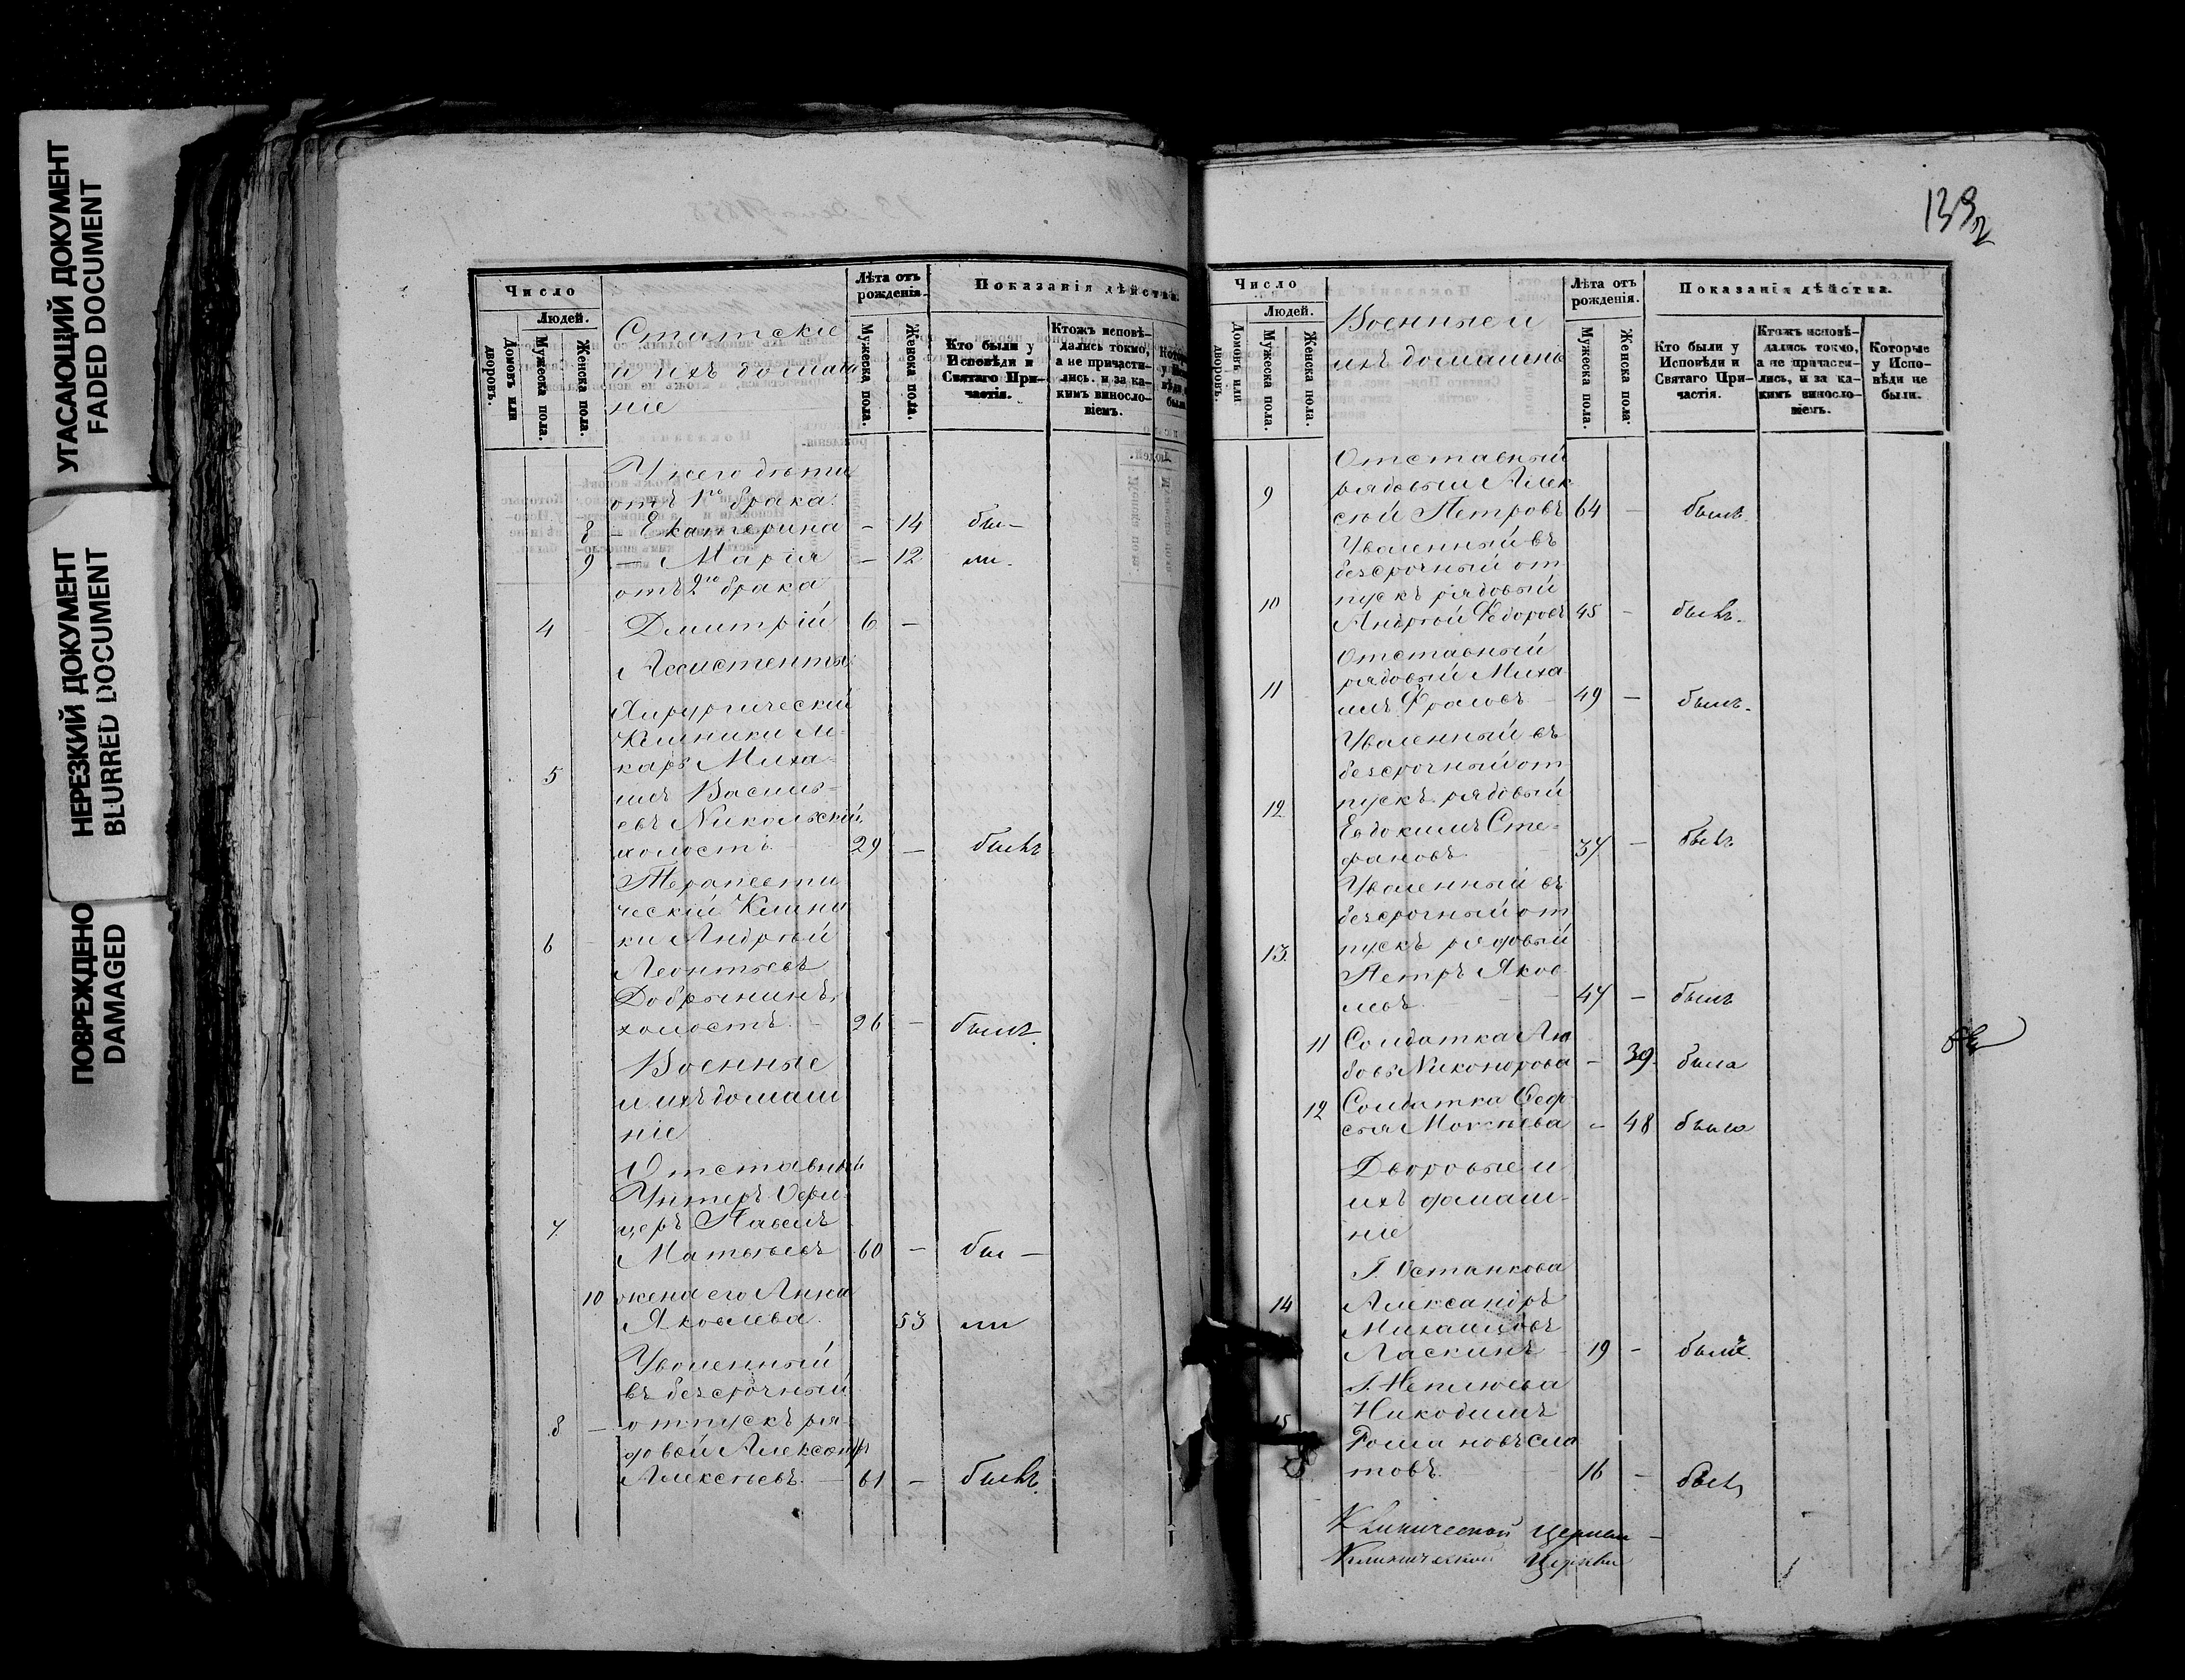 УГАСАЮЩИЙ ДОКУМЕНТ
FADED DOCUMENT
НЕРЕЗКИЙ ДОКУМЕНТ
BLURRED DOCUMENT
ПОВРЕЖДЕНО
DAMAGED
Число
Людей.
Домовъ или дворовъ.
Мужеска пола.
Женска пола.
Статскіе
и ихъ домаш
ніе
Лѣта отъ рожденія.
Мужеска пола.
Женска пола.
Показанія дѣйства.
Кто были у Исповѣди и Святаго Причастія.
Ктожъ исповѣдались токмо, а не причастились, и за какимъ винословіемъ.
У него дѣти
отъ 1го брака
8 — Екатерина — 14 бы—
9 — Марія — 12 ли.
отъ 2го брака
4 Димитрій 6 —
Ассистенты:
Хирургической
Клиники Ле-
5 карь Миха-
илъ Василь-
евъ Никольскій
холостъ 29 — былъ
Терапевти
ческій Клини
6 ки Андрей
Леонтьевъ
Добрынинъ,
холостъ. 26 — былъ.
Военные
и ихъ домаш
ніе
Отставный
Унтеръ Офи-
7 церъ Павелъ
Матвѣевъ 60 — бы —
10 жена его Анна
Яковлева. 53 ли
Уволенный
въ безсрочный
8 — отпускъ ря-
довой Александръ
Алексѣевъ. — 61 — былъ.
139
Число
Людей.
Домовъ или дворовъ.
Мужеска пола.
Женска пола.
Военные и
ихъ домашнь
Лѣта отъ рожденія.
Мужеска пола.
Женска пола
Показанія дѣйства.
Кто были у Исповѣди и Святаго Причастія.
Ктожъ исповѣдались токмо, а не причастились, и за какимъ винословіемъ.
Которые у Исповѣди не были.
Отставный
9 рядовый Алек
сѣй Петровъ 64 — былъ.
Уволенный въ
безсрочный от
10 пускъ рядовый
Андрей Ѳедоровъ 45 — былъ.
Отставный
11 рядовый Миха
илъ Фроловъ 49 — былъ.
Уволенный въ
безсрочный от
12 пускъ рядовый
Евдокимъ Сте-
фановъ 37 — былъ.
Уволенный въ
безсрочный от
13. пускъ рядовый
Петръ Яков
левъ 47 — былъ
11 Солдатка Лю
бовь Никонорова — 39. была
12 Солдатка
Мокѣева — 48 была
Дворовые и
ихъ домаш-
ніе
Г. Останкова
14 Александръ
Михайловъ
Ласкинъ 19 — былъ.
Г. Неплюева
15 Никодимъ
Романовъ
товъ. 16 — былъ
Клинической Церкви —
Клинической Церкви